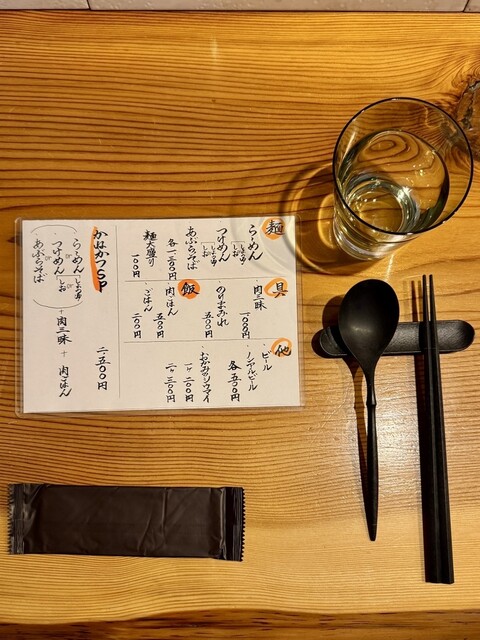 麺
らーめん しょうゆ しお
つけめん しょうゆ しお
あぶらそば
各一、三〇〇円
麺大盛り
一〇〇円
具
肉三昧
一、〇〇〇円
五〇〇円
飯
肉ごはん
五〇〇円
ごはん
二〇〇円
他
・ビール
・ノンアルビール
各 五〇〇円
おかみのシウマイ
一ヶ 二〇〇円
二ヶ 三〇〇円
かねかつSP
らーめん しょうゆ or しお
つけめん or しお
あぶらそば
+ 肉三昧 + 肉ごはん
二、五〇〇円